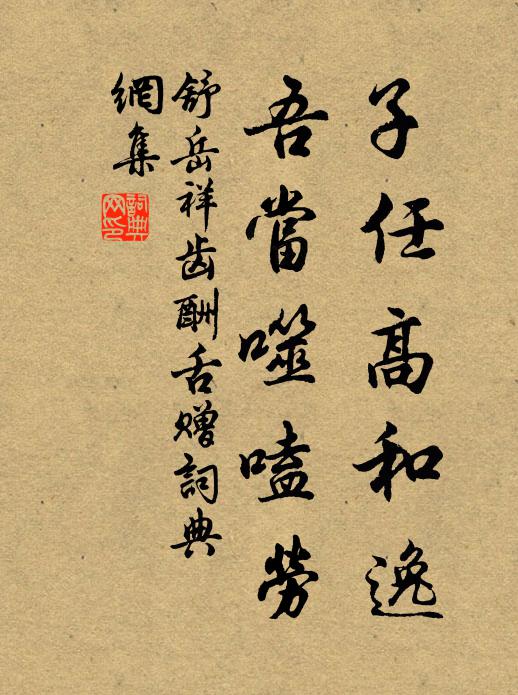 子任高和逸
吾當噬嗑勞
舒岳祥齿酬舌赠詞典
網集
詞典网印